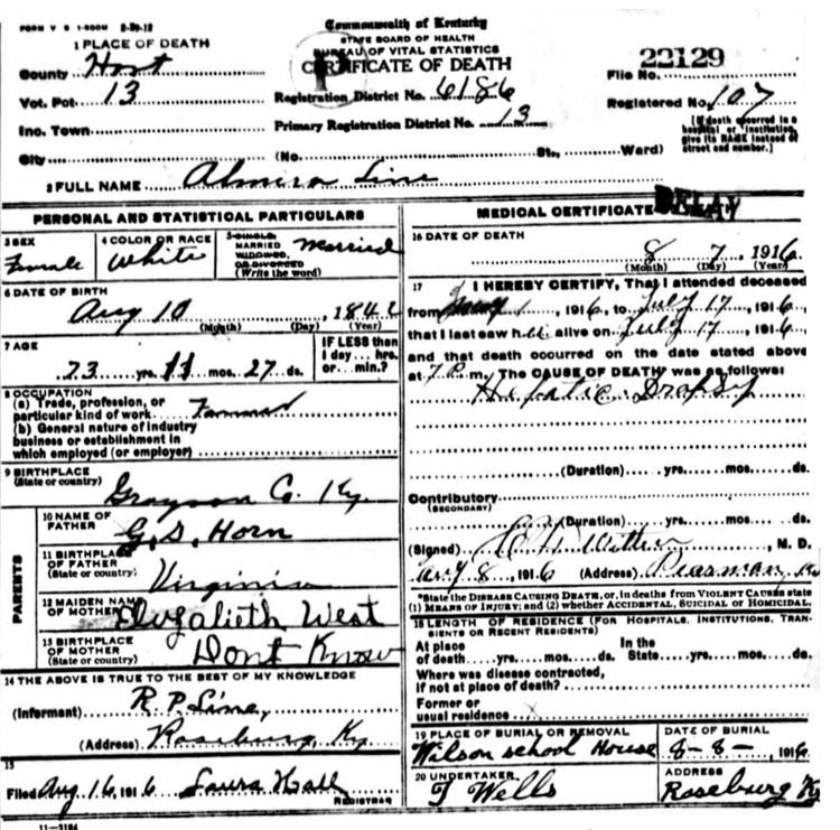 FORM V S 1-500M 2-29-12
Commonwealth of Kentucky
STATE BOARD OF HEALTH
BUREAU OF VITAL STATISTICS
CERTIFICATE OF DEATH
1 PLACE OF DEATH
County Hart
Vot. Pct. 13
Inc. Town
City
Registration District No. 6186
Primary Registration District No. 13
(No. St., Ward)
22129
File No.
Registered No. 107
[If death occurred in a
hospital or institution,
give its NAME instead of
street and number.]
2 FULL NAME Almira Line
PERSONAL AND STATISTICAL PARTICULARS
3 SEX
Female
4 COLOR OR RACE
White
5 SINGLE
MARRIED
WIDOWED,
OR DIVORCED
(Write the word)
Married
6 DATE OF BIRTH
Aug 10, 1842
(Month) (Day) (Year)
7 AGE
73 yrs. 11 mos. 27 ds.
IF LESS than
1 day... hrs.
or... min.?
8 OCCUPATION
(a) Trade, profession, or
particular kind of work
(b) General nature of industry
business or establishment in
which employed (or employer)
9 BIRTHPLACE
(State or country)
Grayson Co. Ky.
PARENTS
10 NAME OF
FATHER
G. S. Horn
11 BIRTHPLACE
OF FATHER
(State or country)
Virginia
12 MAIDEN NAME
OF MOTHER
Elizabeth West
13 BIRTHPLACE
OF MOTHER
(State or country)
Dont Know
14 THE ABOVE IS TRUE TO THE BEST OF MY KNOWLEDGE
(Informant) R. P. Line,
(Address) Roseburg, Ky.
15
Filed Aug 16, 1916 Laura Hall
REGISTRAR
11-3184
MEDICAL CERTIFICATE
DELAY
16 DATE OF DEATH
8 7, 1916
(Month) (Day) (Year)
17 I HEREBY CERTIFY, That I attended deceased
from 1, 1916, to July 17, 1916,
that I last saw her alive on July 17, 1916
and that death occurred on the date stated above
at 7 P. m. The CAUSE OF DEATH was as follows:
Hepatic Dropsy
(Duration) yrs. mos. ds.
Contributory
(SECONDARY)
(Duration) yrs. mos. ds.
(Signed) , M. D.
Aug 8, 1916 (Address) Pearman, Ky
*State the DISEASE CAUSING DEATH, or, in deaths from VIOLENT CAUSES state
(1) MEANS OF INJURY; and (2) whether ACCIDENTAL, SUICIDAL or HOMICIDAL.
18 LENGTH OF RESIDENCE (FOR HOSPITALS, INSTITUTIONS, TRAN-
SIENTS OR RECENT RESIDENTS)
At place In the
of death yrs. mos. ds. State yrs. mos. ds.
Where was disease contracted,
if not at place of death?
Former or
usual residence
19 PLACE OF BURIAL OR REMOVAL
Wilson school House
DATE OF BURIAL
8-8-, 1916
20 UNDERTAKER
T Wells
ADDRESS
Roseburg Ky